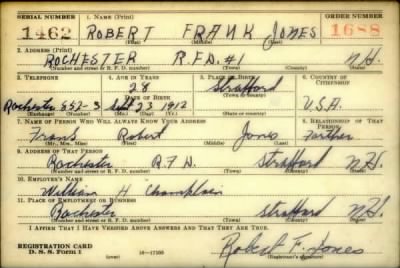 SERIAL NUMBER 1. Name (Print) ORDER NUMBER
1462 ROBERT FRANK JONES 1688
(First) (Middle) (Last)
2. Address (Print)
ROCHESTER R.F.D. #1 N.H.
(Number and street or R. F. D. number) (Town) (County) (State)
3. Telephone 4. Age in Years 5. Place of Birth 6. Country of Citizenship
28 Strafford
Date of Birth (Town or county)
Rochester 552-3 Sept 23 1912 N.H. U.S.A.
(Exchange) (Number) (Mo.) (Day) (Yr.) (State or country)
7. Name of Person Who Will Always Know Your Address 8. Relationship of That Person
Frank Robert Jones Farther
(Mr., Mrs., Miss) (First) (Middle) (Last)
9. Address of That Person
Rochester R.F.D. Strafford N.H.
(Number and street or R. F. D. number) (Town) (County) (State)
10. Employer's Name
William H Champlain
11. Place of Employment or Business
Rochester Strafford N.H.
(Number and street or R. F. D. number) (Town) (County) (State)
I Affirm That I Have Verified Above Answers and That They Are True.
Robert F. Jones
REGISTRATION CARD
D. S. S. Form 1 16—17105 (Registrant's signature)